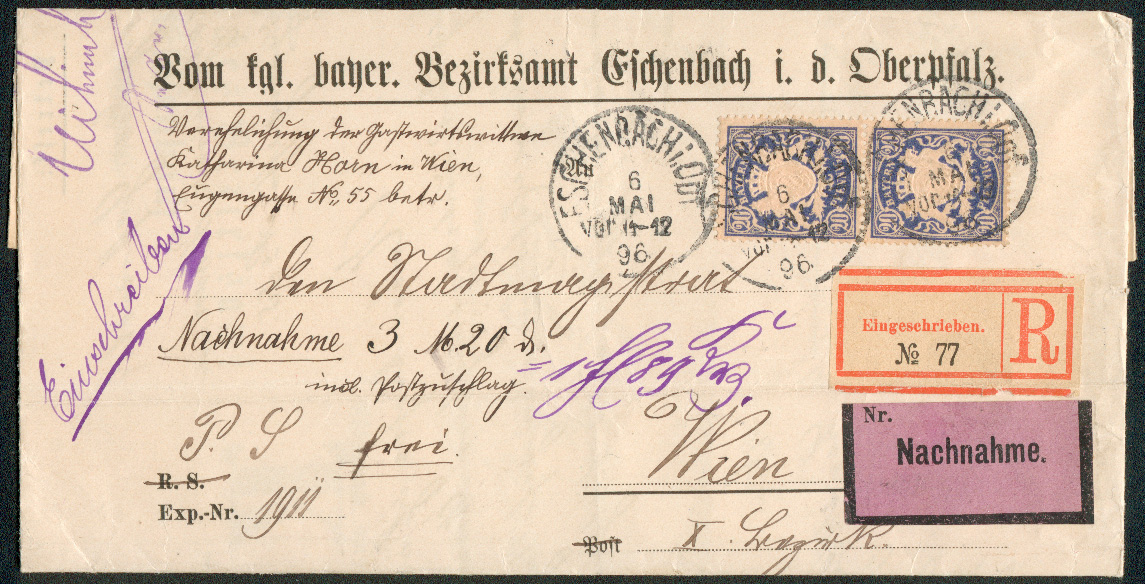 Vom kgl. bayer. Bezirksamt Eschenbach i. d. Oberpfalz.
Verehelichung der Gastwirtswittwe
Katharina Horn in Wien,
Eugengasse No. 55 betr.
An
ESCHENBACH i. Opf
6
MAI
VOR 11-12
96
6
MAI
VOR 11-12
96
ESCHENBACH i. Opf
MAI
20 BAYERN 20
20 20
Einschreiben
den Stadtmagistrat
Nachnahme 3 M. 20 d.
incl. Postzuschlag.
= 1 fl 89 Kr.
Eingeschrieben.
№ 77
R
Nr.
Nachnahme.
P. S frei.
R. S.
Exp.-Nr. 1911
Wien
Post X. Bezirk.